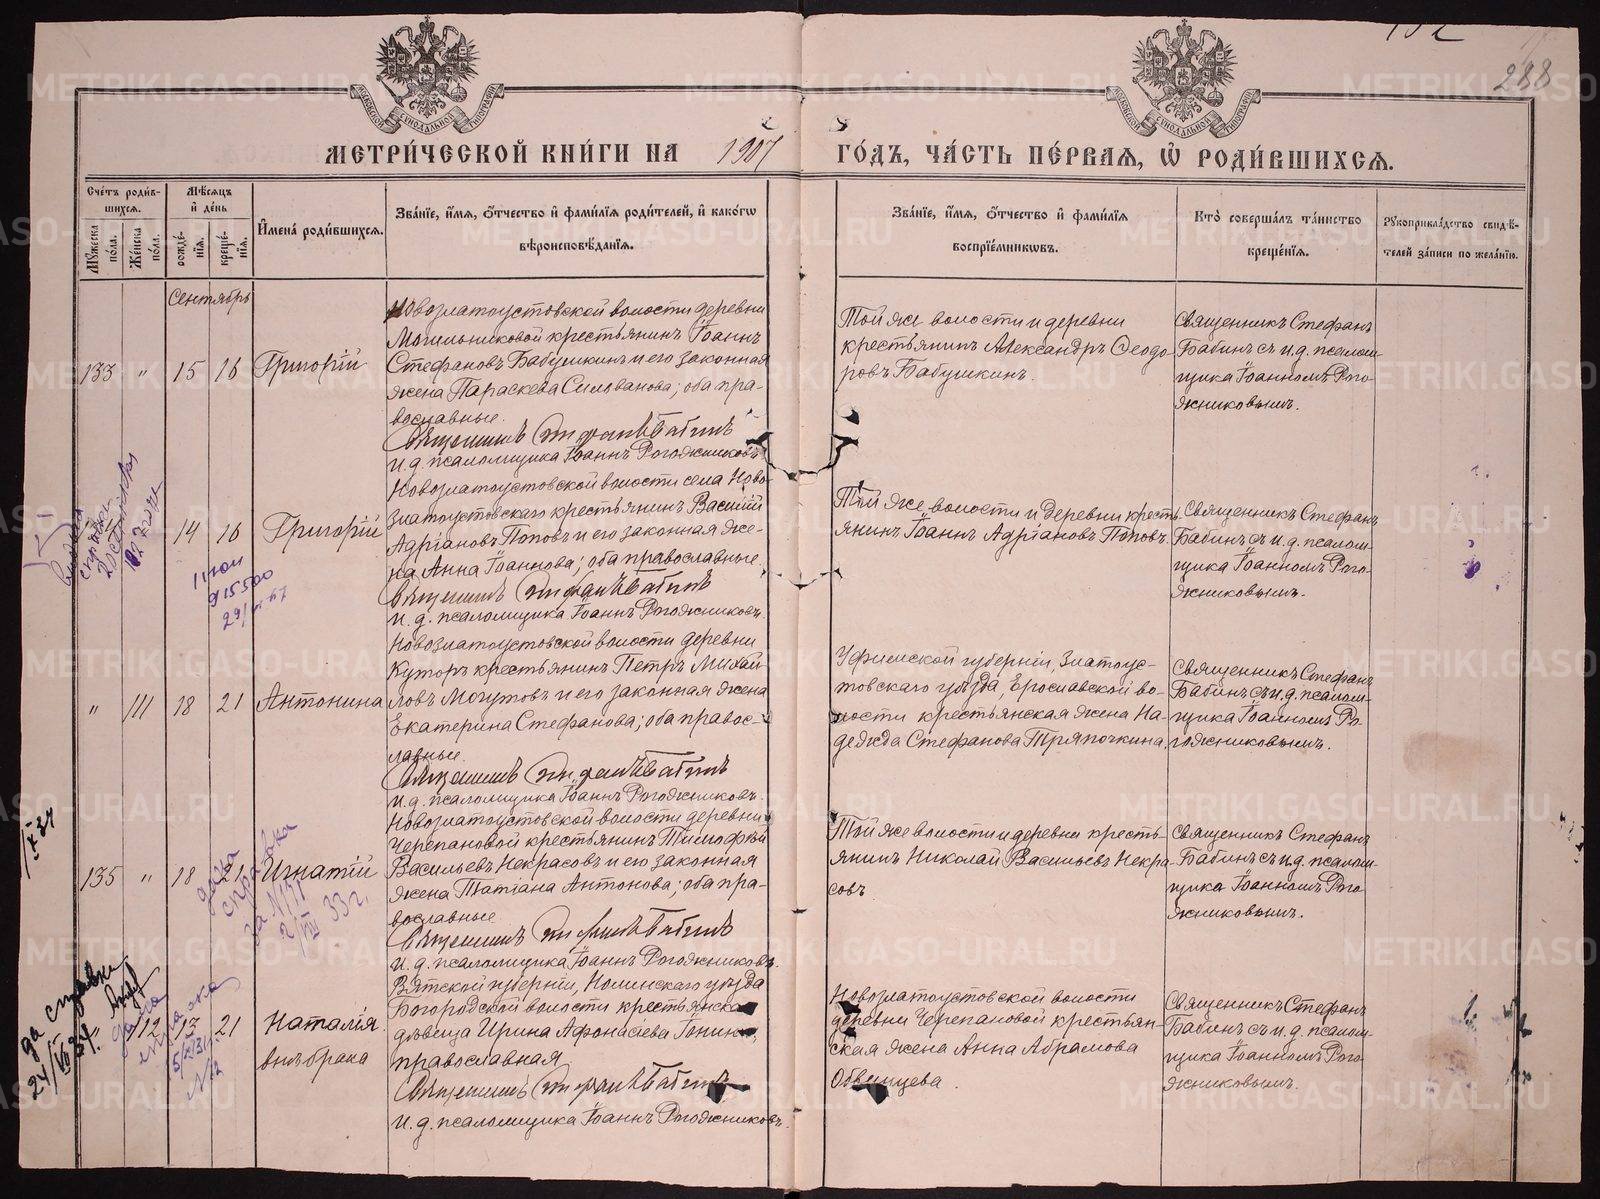 288
МЕТРИ́ЧЕСКОЙ КНИ́ГИ НА 1907 ГО́ДЪ, ЧА́СТЬ ПЕ́РВАЯ, Ѡ҆ РОДИ́ВШИХСЯ.
Сче́тъ роди́в-
шихся.
Му́жеска
по́ла.
Же́нска
по́ла.
Мѣ́сяцъ
и҆ де́нь
рожде́-
нїя.
креще́-
нїя.
И҆мена̀ роди́вшихся.
Зва́нїе, и҆́мя, ѻ҆́тчество и҆ фами́лїя роди́телей, и҆ како́гѡ
вѣроисповѣ́данїя.
Зва́нїе, и҆́мя, ѻ҆́тчество и҆ фами́лїя
воспрїе́мникѡвъ.
Кто̀ соверша́лъ та́инство
креще́нїя.
Рꙋкоприкла́дство свидѣ́-
телей за́писи по жела́нїю.
Сентябрь
133 " 15 16 Григорій
Новозлатоустовской волости деревни
Могильниковой крестьянинъ Іоаннъ
Стефановъ Бабушкинъ и его законная
жена Параскева Силованова; оба пра-
вославные.
Священникъ Стефанъ Бабинъ
И. д. псаломщика Іоаннъ Рогожниковъ
Той же волости и деревни
крестьянинъ Александръ Ѳеодо-
ровъ Бабушкинъ.
Священникъ Стефанъ
Бабинъ съ и.д. псалом-
щика Іоанномъ Рого-
жниковымъ.
14 16 Григорій
Новозлатоустовской волости села Ново-
златоустовскаго крестьянинъ Василій
Адріановъ Поповъ и его законная же-
на Анна Іоаннова; оба православные
Священникъ Стефанъ Бабинъ
И. д. псаломщика Іоаннъ Рогожниковъ.
Той же волости и деревни кресть
янинъ Іоаннъ Адріановъ Поповъ.
Священникъ Стефанъ
Бабинъ съ и.д. псалом-
щика Іоанномъ Рого-
жниковымъ.
915500
" 111 18 21 Антонина
Новозлатоустовской волости деревни
Куторъ крестьянинъ Петръ Михай
ловъ Могутовъ и его законная жена
Екатерина Стефанова; оба правос-
лавные.
Священникъ Стефанъ Бабинъ
И.д. псаломщика Іоаннъ Рогожниковъ.
Уфимской губерніи, Златоус-
товскаго уѣзда, Ерославской во-
лости крестьянская жена На-
дежда Стефанова Тряпочкина.
Священникъ Стефанъ
Бабинъ съ и.д. псалом-
щика Іоанномъ Ро-
гожниковымъ.
135 " 18 21 Игнатій
Новозлатоустовской волости деревни
Черепановой крестьянинъ Тимофей
Васильевъ Некрасовъ и его законная
жена Татіана Антонова; оба пра-
вославные
Священникъ Стефанъ Бабинъ
И. д. псаломщика Іоаннъ Рогожниковъ.
Той же волости и деревни кресть
янинъ Николай Васильевъ Некра-
совъ
Священникъ Стефанъ
Бабинъ съ и.д. псалом-
щика Іоанномъ Рого-
жниковымъ.
дана
справка
33 г.
" 112 13 21 Наталія
внѣбрачна
Вятской губерніи, Нолинскаго уѣзда
Богородской волости крестьянска
дѣвица Ирина Афонасіева Гонина,
православная
Священникъ Стефанъ Бабинъ
И. д. псаломщика Іоаннъ Рогожниковъ.
Новозлатоустовской волости
деревни Черепановой крестьян-
ская жена Анна Абрамова
Обвинцева.
Священникъ Стефанъ
Бабинъ съ и.д. псалом-
щика Іоанномъ Рого-
жниковымъ.
METRIKI.GASO-URAL.RU